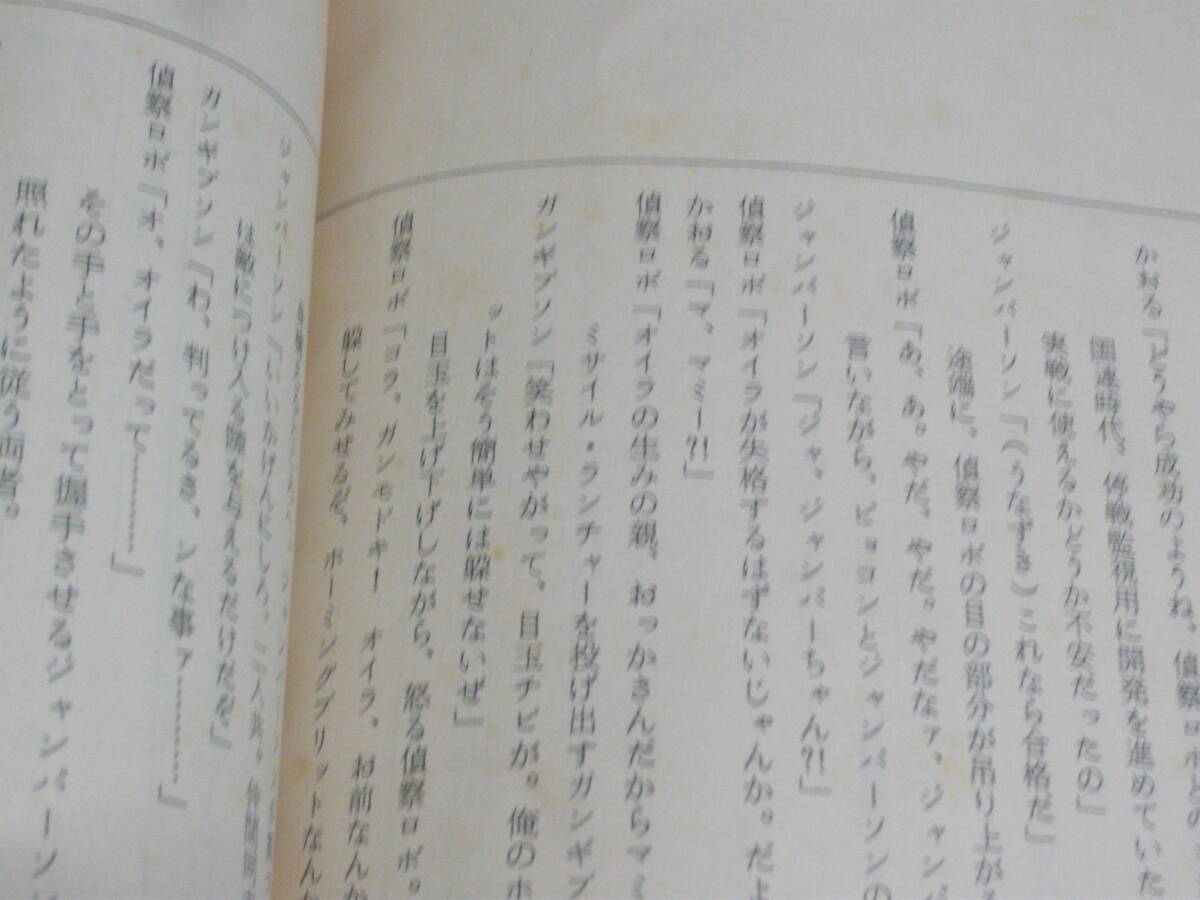 かおる「どうやら成功のようね。偵察ロボとの
国連時代、停戦監視用に開発を進めていた
実戦に使えるかどうか不安だったの」
ジャンパーソン「（うなずき）これなら合格だ」
途端に、偵察ロボの目の部分が吊り上がる
偵察ロボ「あ、あ。やだ、やだ。やだなァ、ジャンパ
言いながら、ピョンとジャンパーソンの
ジャンパーソン「ジャ、ジャンパーちゃん?!」
偵察ロボ「オイラが失格するはずないじゃんか。だよ
かおる「マ、マミー?!」
偵察ロボ「オイラの生みの親、おっかさんだからマミ
ミサイル・ランチャーを投げ出すガンギブ
ガンギブソン「笑わせやがって、目玉チビが。俺のホ
ットはそう簡単には躱せないぜ」
目玉を上げ下げしながら、怒る偵察ロボ。
偵察ロボ「コラ、ガンモドキ！　オイラ、お前なんか
躱してみせるぞ、ホーミングブリットなんか
ジャンパーソン「いいかげんにしろ、二人共。仲間割れ
は敵につけ入る隙を与えるだけだぞ」
ガンギブソン「わ、判ってるさ、ンな事ァ…………」
偵察ロボ「オ、オイラだって…………」
その手と手をとって握手させるジャンパーソン
照れたように従う両者。